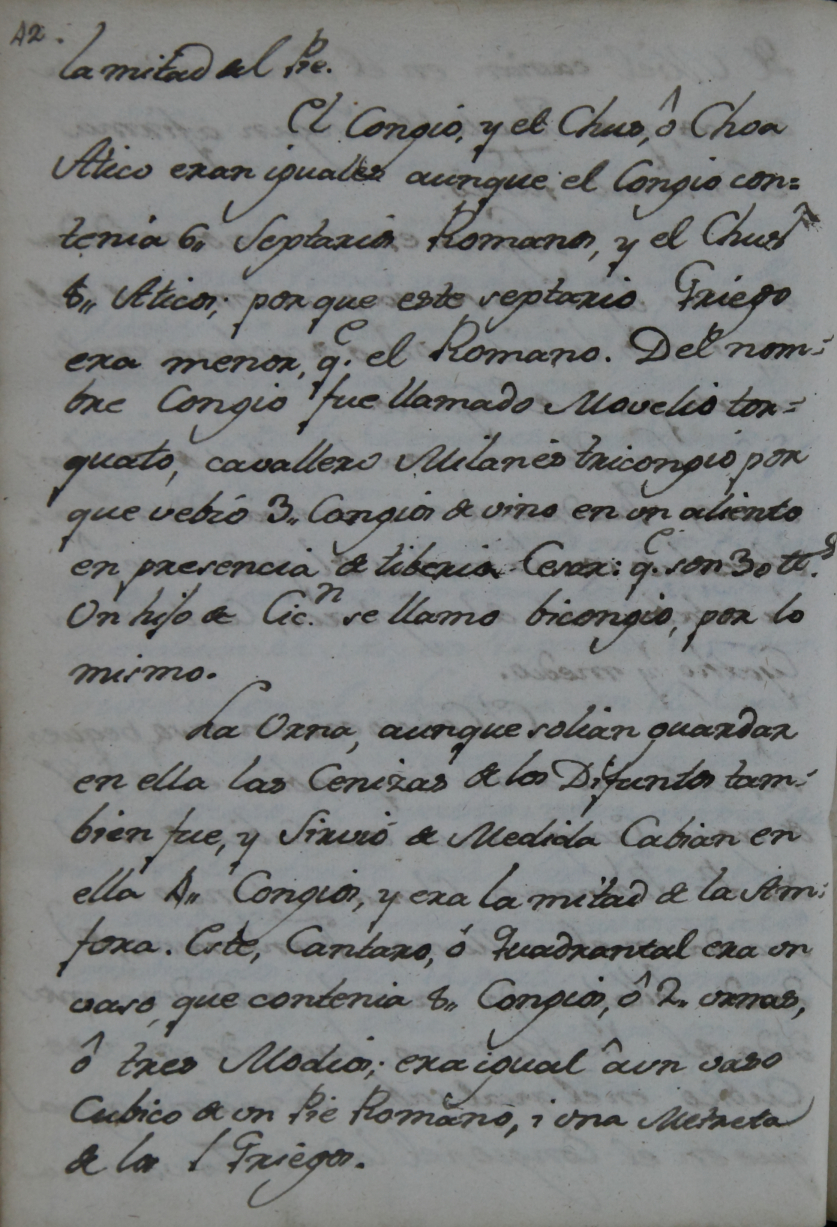 42.
la mitad del Pie.
El Congio, y el Chus, ô Choa
Atico eran iguales aunque el Congio con=
tenia 6,, Septarios Romanos, y el Chus
8,, Aticos; por que este septario Griego
era menor, q.e el Romano. Del nom=
bre Congio fue llamado Movelio tor=
quato, cavallero Milanès tricongio por
que vebió 3,, Congios de vino en un aliento
en presencia de tiberia Cesar: q.e son 30 tt.s
Un hijo de Cic.n se llamo bicongio, por lo
mismo.
La Urna, aunque solian guardar
en ella las Cenizas de los Difuntos tam=
bien fue, y Sirvió de Medida Cabian en
ella 4,, Congios, y era la mitad de la Am=
fora. Este, Cantaro, ó Quadrantal era un
vaso, que contenia 8,, Congios, ô 2,, urnas,
ô tres Modios; era igual â un vaso
Cubico de un Pie Romano, i una Metreta
de los Griegos.